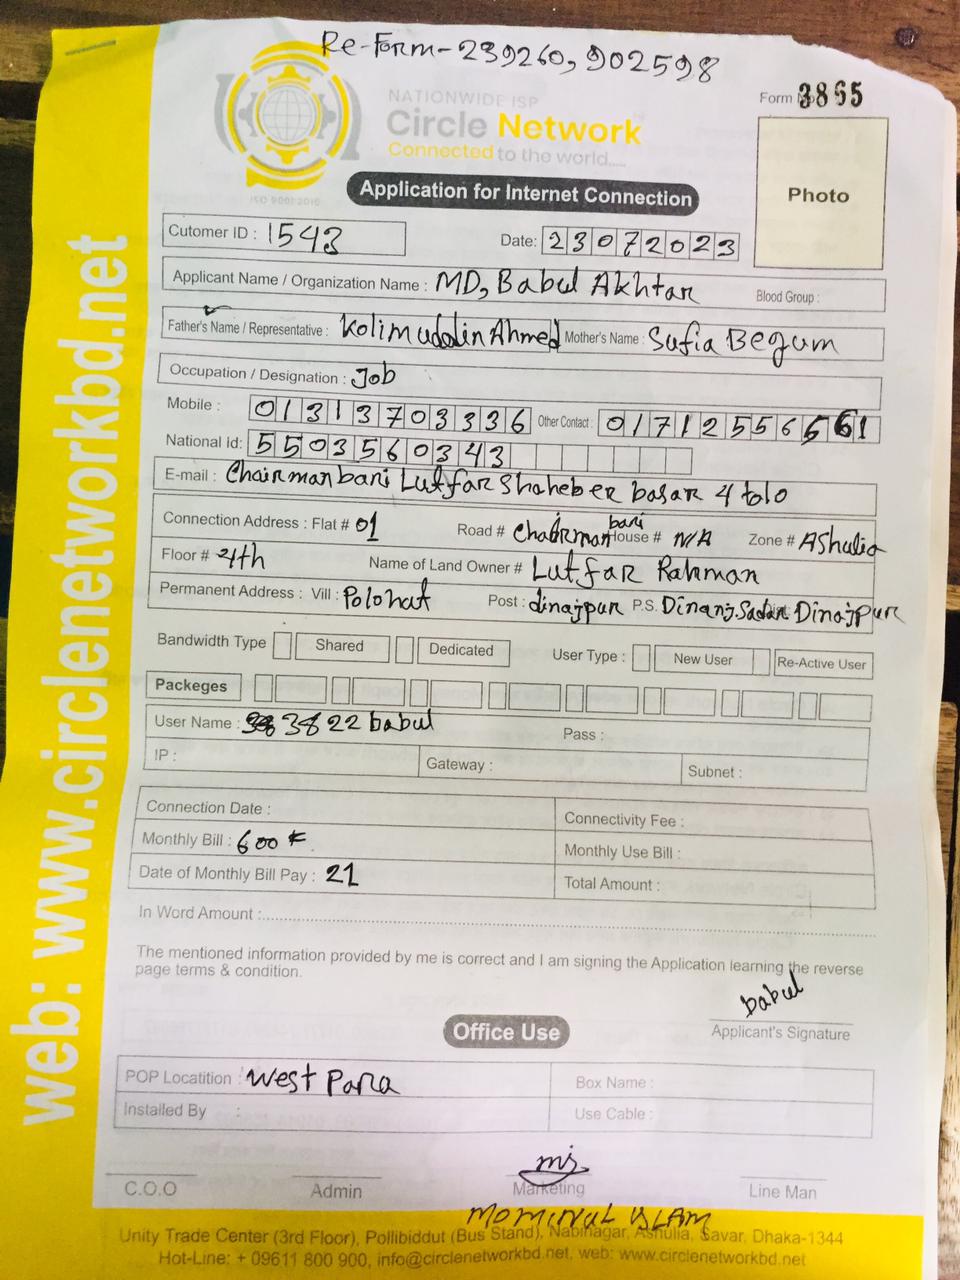 Re-Form-239260, 902598
Form No 3865
NATIONWIDE ISP
Circle Network
Connected to the world.....
ISO 9001:2010
Application for Internet Connection
Photo
Cutomer ID : 1543
Date: 23072023
Applicant Name / Organization Name : MD, Babul Akhtar Blood Group :
Father's Name / Representative : Kolimuddin Ahmed Mother's Name : Sufia Begum
Occupation / Designation : Job
Mobile : 01313703336 Other Contact : 01712556661
National id: 5503560343
E-mail : Chairmanbari Lutfar Shaheber basar 4 tolo
Connection Address : Flat # 01 Road # Chairman bari House # N/A Zone # AShulia
Floor # 4th Name of Land Owner # Lutfar Rahman
Permanent Address : Vill : Polohat Post : dinajpur P.S. Dinanj Sadar Dinajpur
Bandwidth Type Shared Dedicated User Type : New User Re-Active User
Packeges
User Name : 3822 babul Pass :
IP : Gateway : Subnet :
Connection Date : Connectivity Fee :
Monthly Bill : 600 Monthly Use Bill :
Date of Monthly Bill Pay : 21 Total Amount :
In Word Amount :
The mentioned information provided by me is correct and I am signing the Application learning the reverse
page terms & condition.
babul
Applicant's Signature
Office Use
POP Locatition : West Para Box Name :
Installed By : Use Cable :
C.O.O Admin Marketing Line Man
MOMINUL ISLAM
Unity Trade Center (3rd Floor), Pollibiddut (Bus Stand), Nabinagar, Ashulia, Savar, Dhaka-1344
Hot-Line: + 09611 800 900, info@circlenetworkbd.net, web: www.circlenetworkbd.net
web: www.circlenetworkbd.net